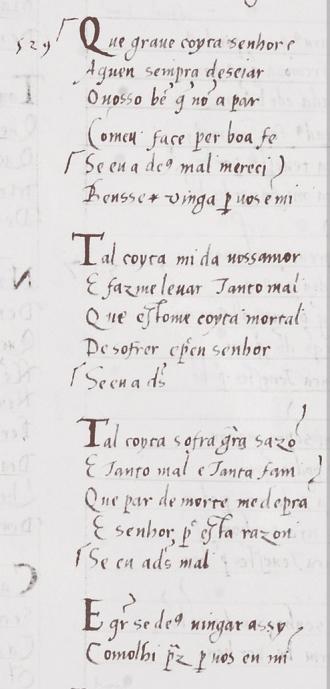 529 Que graue coyta senhor e
Aquen sempra deseiar
O uosso bẽ q̃ nõ a par
Comeu face per boa fe
Se eu a deꝰ mal mereci
Bensse uinga p uos e mi
Tal coyta mi da uossamor
E fazme leuar Tanto mal
Que esto me coyta mortal
De sofrer e pͤ eu senhor
Se eu a ds̃
Tal coyta sofra grã sazõ
E Tanto mal e Tanta fam
Que par de morte me depra
E senhor, pͤ esta razon
Se eu a ds̃ mal
E qr̃ se deꝰ uingar assy
Comolhi pr̃z p uos en mi